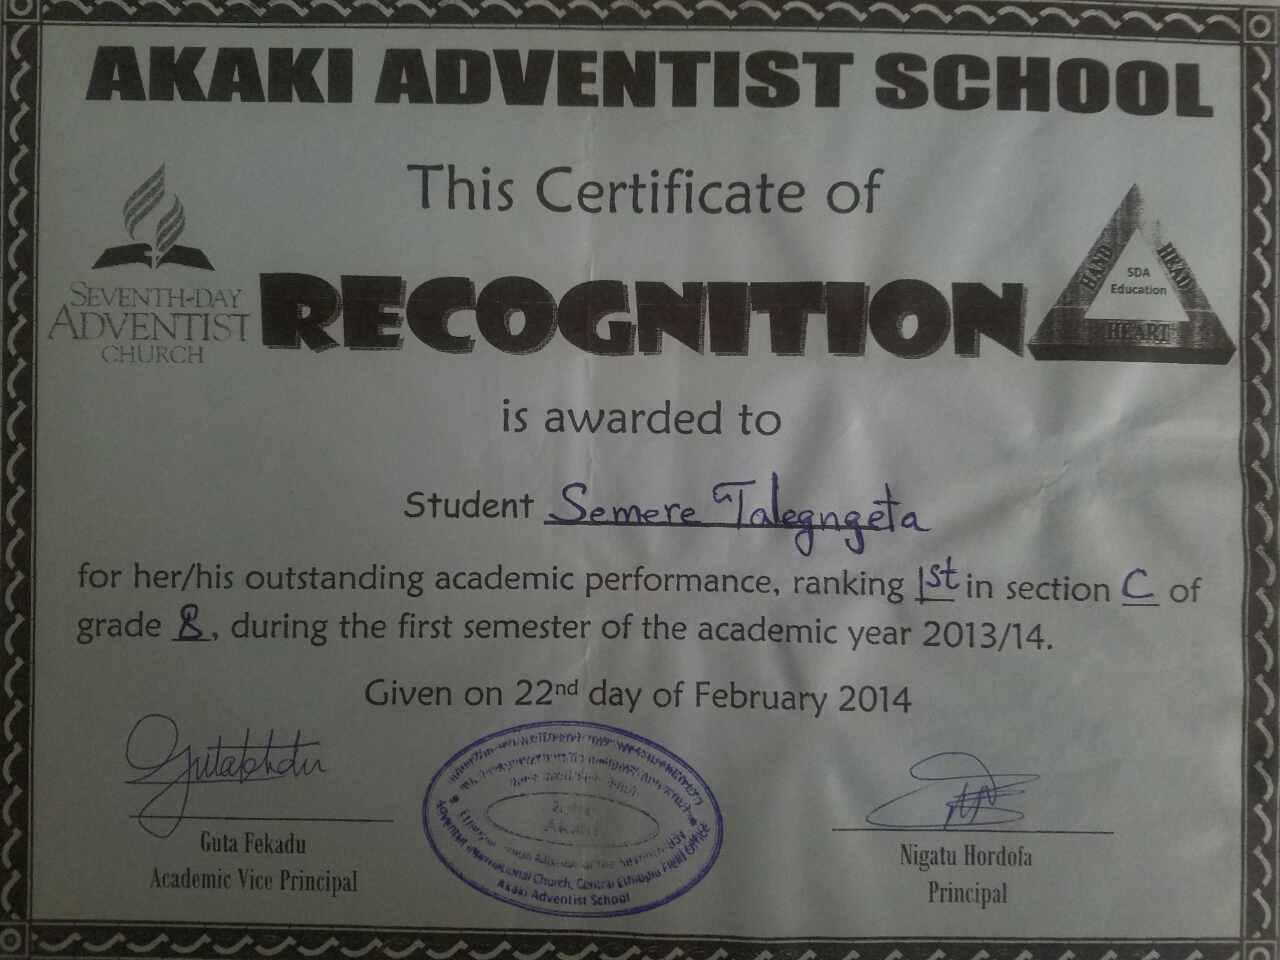 AKAKI ADVENTIST SCHOOL
This Certificate of
SEVENTH-DAY
ADVENTIST
CHURCH
RECOGNITION
HAND
HEAD
SDA
Education
HEART
is awarded to
Student Semere Talegngeta
for her/his outstanding academic performance, ranking 1st in section C of
grade 8, during the first semester of the academic year 2013/14.
Given on 22nd day of February 2014
Guta Fekadu
Academic Vice Principal
Adventist International Church, Central Ethiopia Field Office
Akaki Adventist School
Nigatu Hordofa
Principal